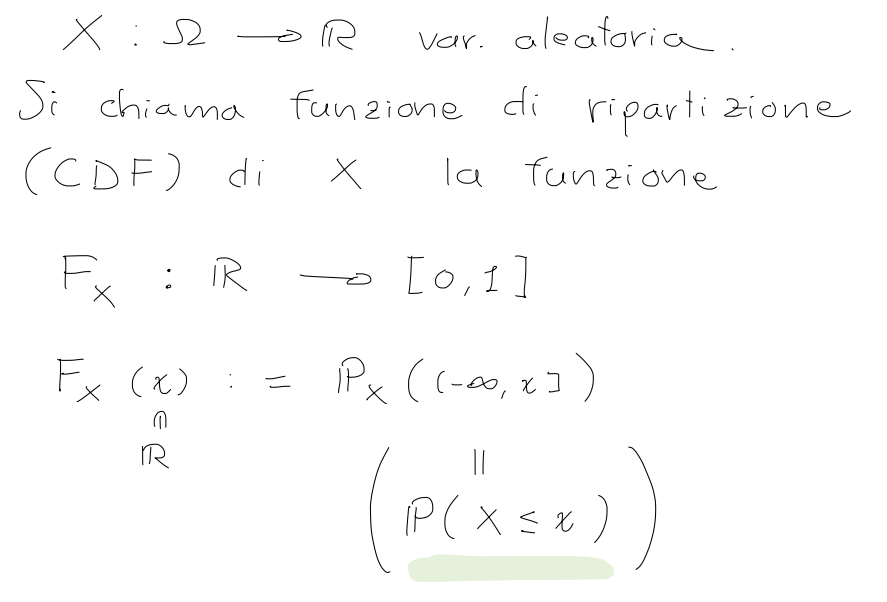 X : Ω → ℝ var. aleatoria.
Si chiama funzione di ripartizione
(CDF) di X la funzione
F_X : ℝ → [0,1]
F_X (x) := ℙ_X ((-∞, x])
∩
ℝ
||
(ℙ(X ≤ x))